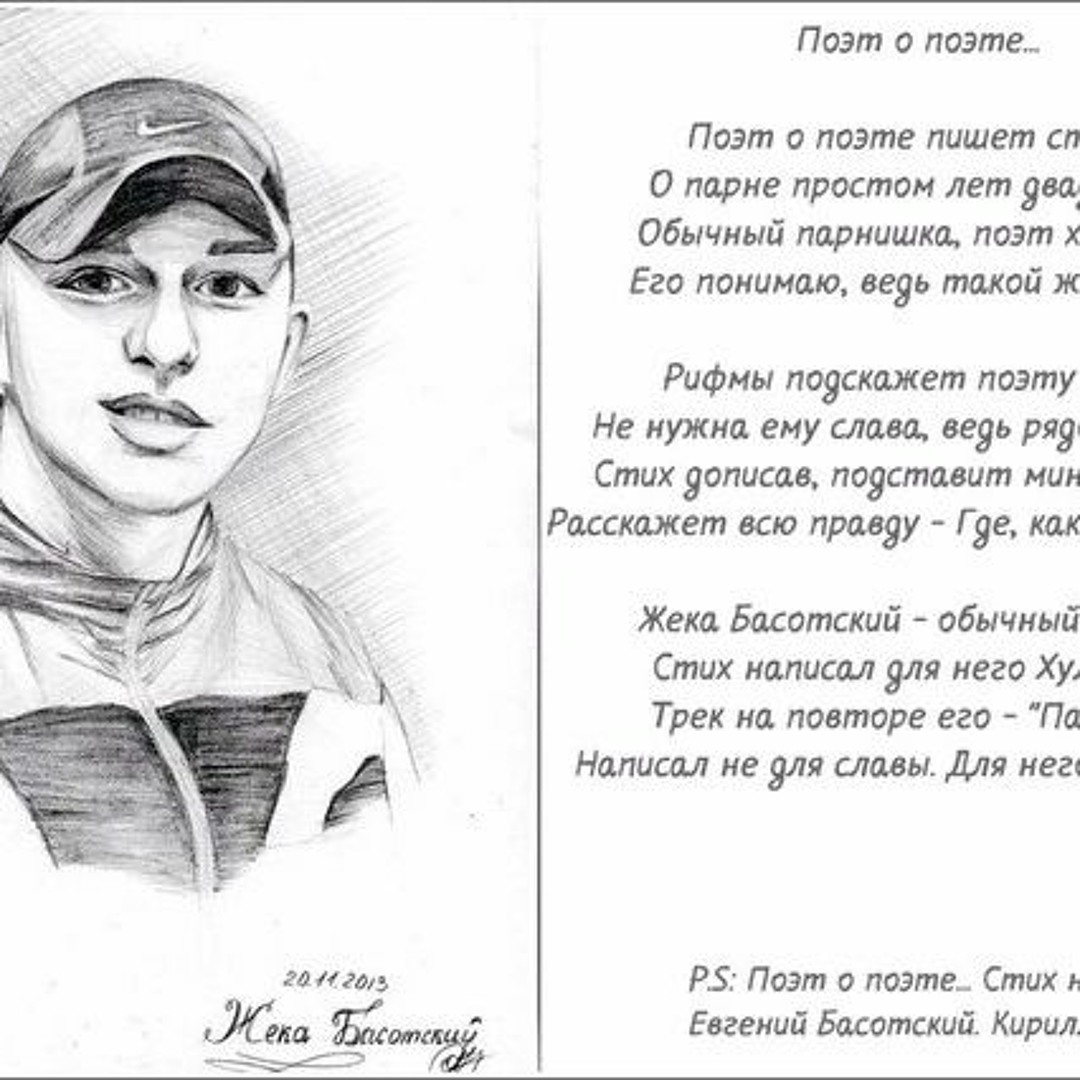 Поэт о поэте...
Поэт о поэте пишет
О парне простом лет
Обычный парнишка, поэт
Его понимаю, ведь такой
Рифмы подскажет поэту
Не нужна ему слава, ведь
Стих дописав, подставит
Расскажет всю правду - Где, как
Жека Басотский - обычный
Стих написал для него
Трек на повторе его -
Написал не для славы. Для него
P.S: Поэт о поэте... Стих
Евгений Басотский.
20.11.2013
Жека Басотский